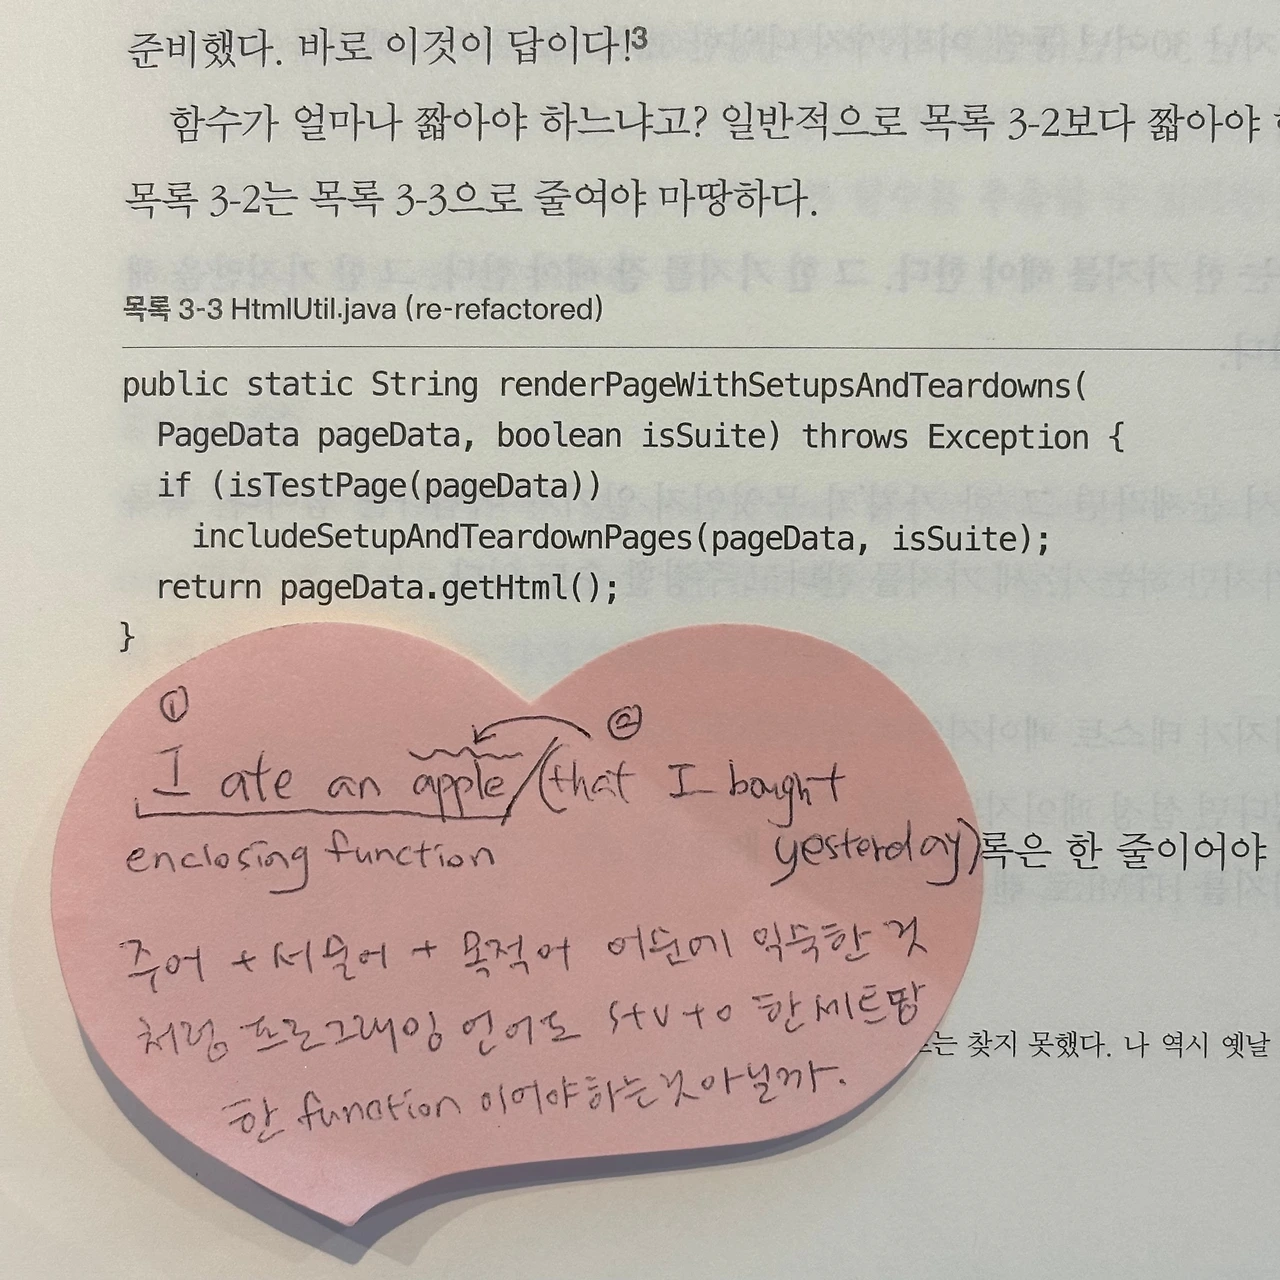 준비했다. 바로 이것이 답이다!3
함수가 얼마나 짧아야 하느냐고? 일반적으로 목록 3-2보다 짧아야
목록 3-2는 목록 3-3으로 줄여야 마땅하다.
목록 3-3 HtmlUtil.java (re-refactored)
public static String renderPageWithSetupsAndTeardowns(
PageData pageData, boolean isSuite) throws Exception {
if (isTestPage(pageData))
includeSetupAndTeardownPages(pageData, isSuite);
return pageData.getHtml();
}
① ②
I ate an apple/(that I bought
yesterday)
enclosing function
록은 한 줄이어야
주어 + 서술어 + 목적어 어순에 익숙한 것
처럼 프로그래밍 언어도 s+v+o 한세트땅
는 찾지 못했다. 나 역시 옛날
한 function 이어야하는것아닐까.